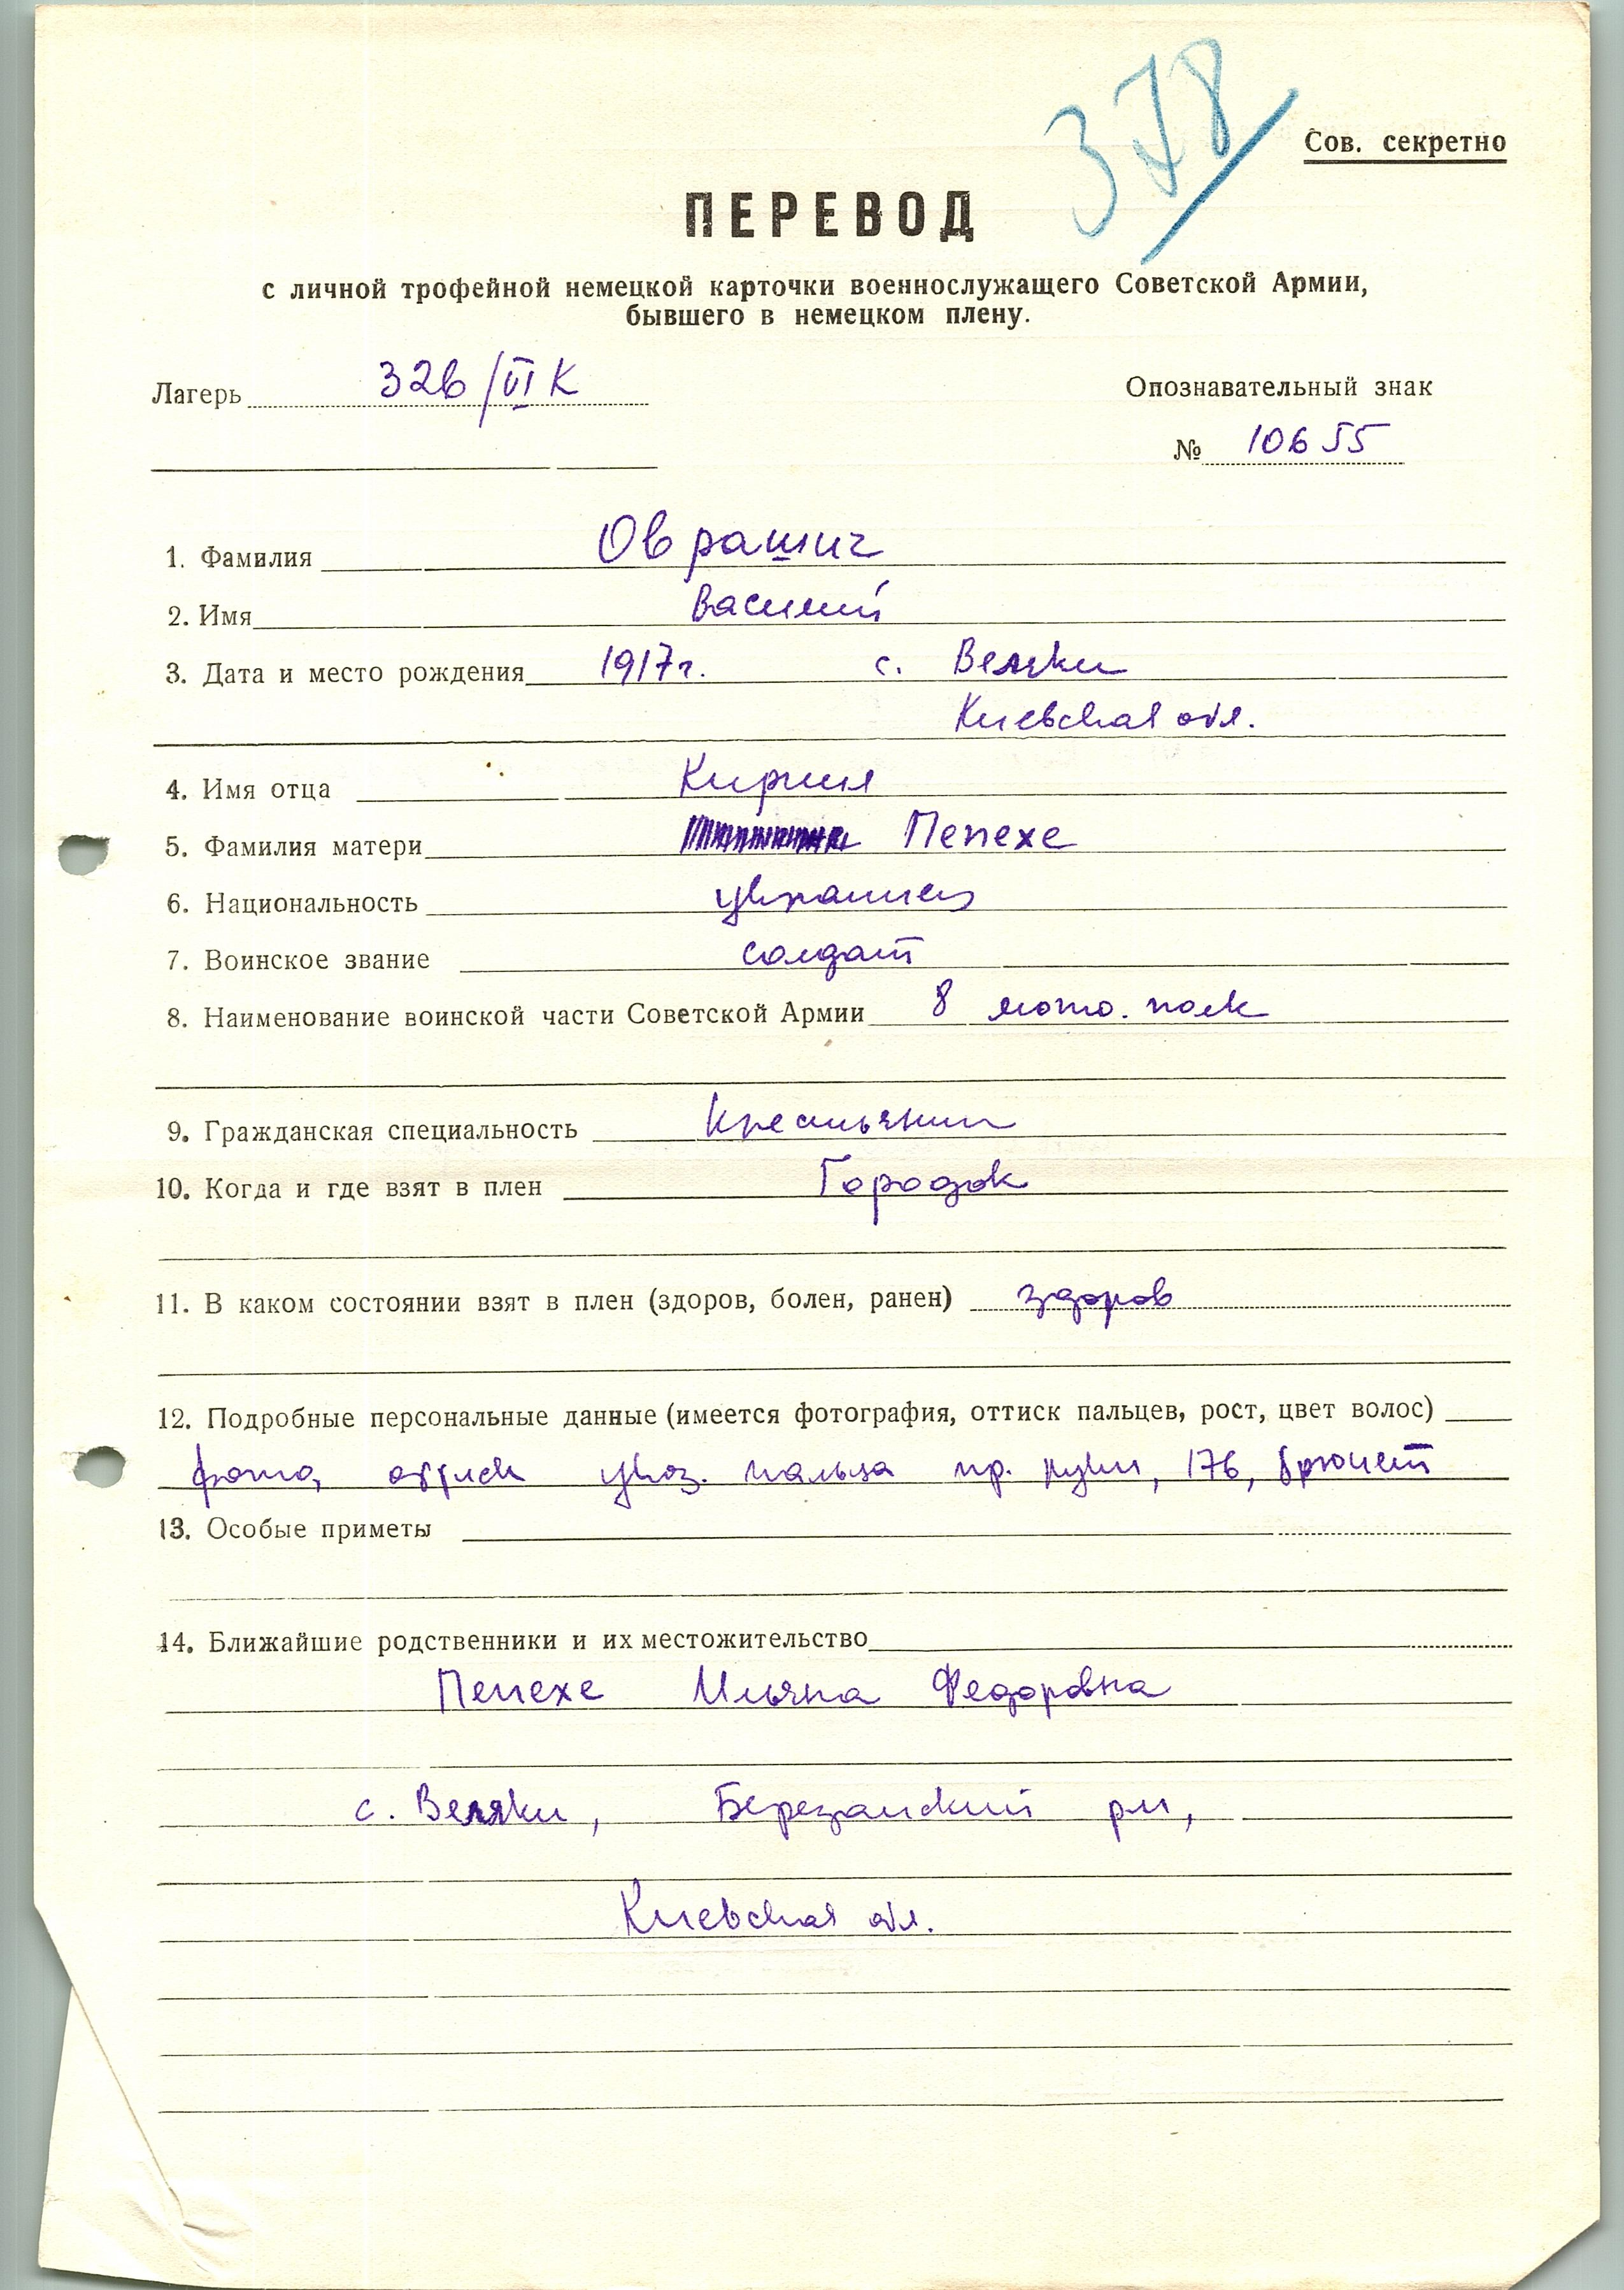 378
Сов. секретно
ПЕРЕВОД
с личной трофейной немецкой карточки военнослужащего Советской Армии,
бывшего в немецком плену.
Лагерь 326/VI К
Опознавательный знак
№ 10655
1. Фамилия Оврашич
2. Имя Василий
3. Дата и место рождения 1917г. с. Веляки
Киевская обл.
4. Имя отца Кирилл
5. Фамилия матери Пепехе
6. Национальность украинец
7. Воинское звание солдат
8. Наименование воинской части Советской Армии 8 мото. полк
9. Гражданская специальность Крестьянин
10. Когда и где взят в плен Городок
11. В каком состоянии взят в плен (здоров, болен, ранен) здоров
12. Подробные персональные данные (имеется фотография, оттиск пальцев, рост, цвет волос)
фото, оттиск указ. пальца пр. руки, 176, брюнет
13. Особые приметы
14. Ближайшие родственники и их местожительство
Пепехе Ульяна Федоровна
с. Веляки, Березанский
Киевская обл.